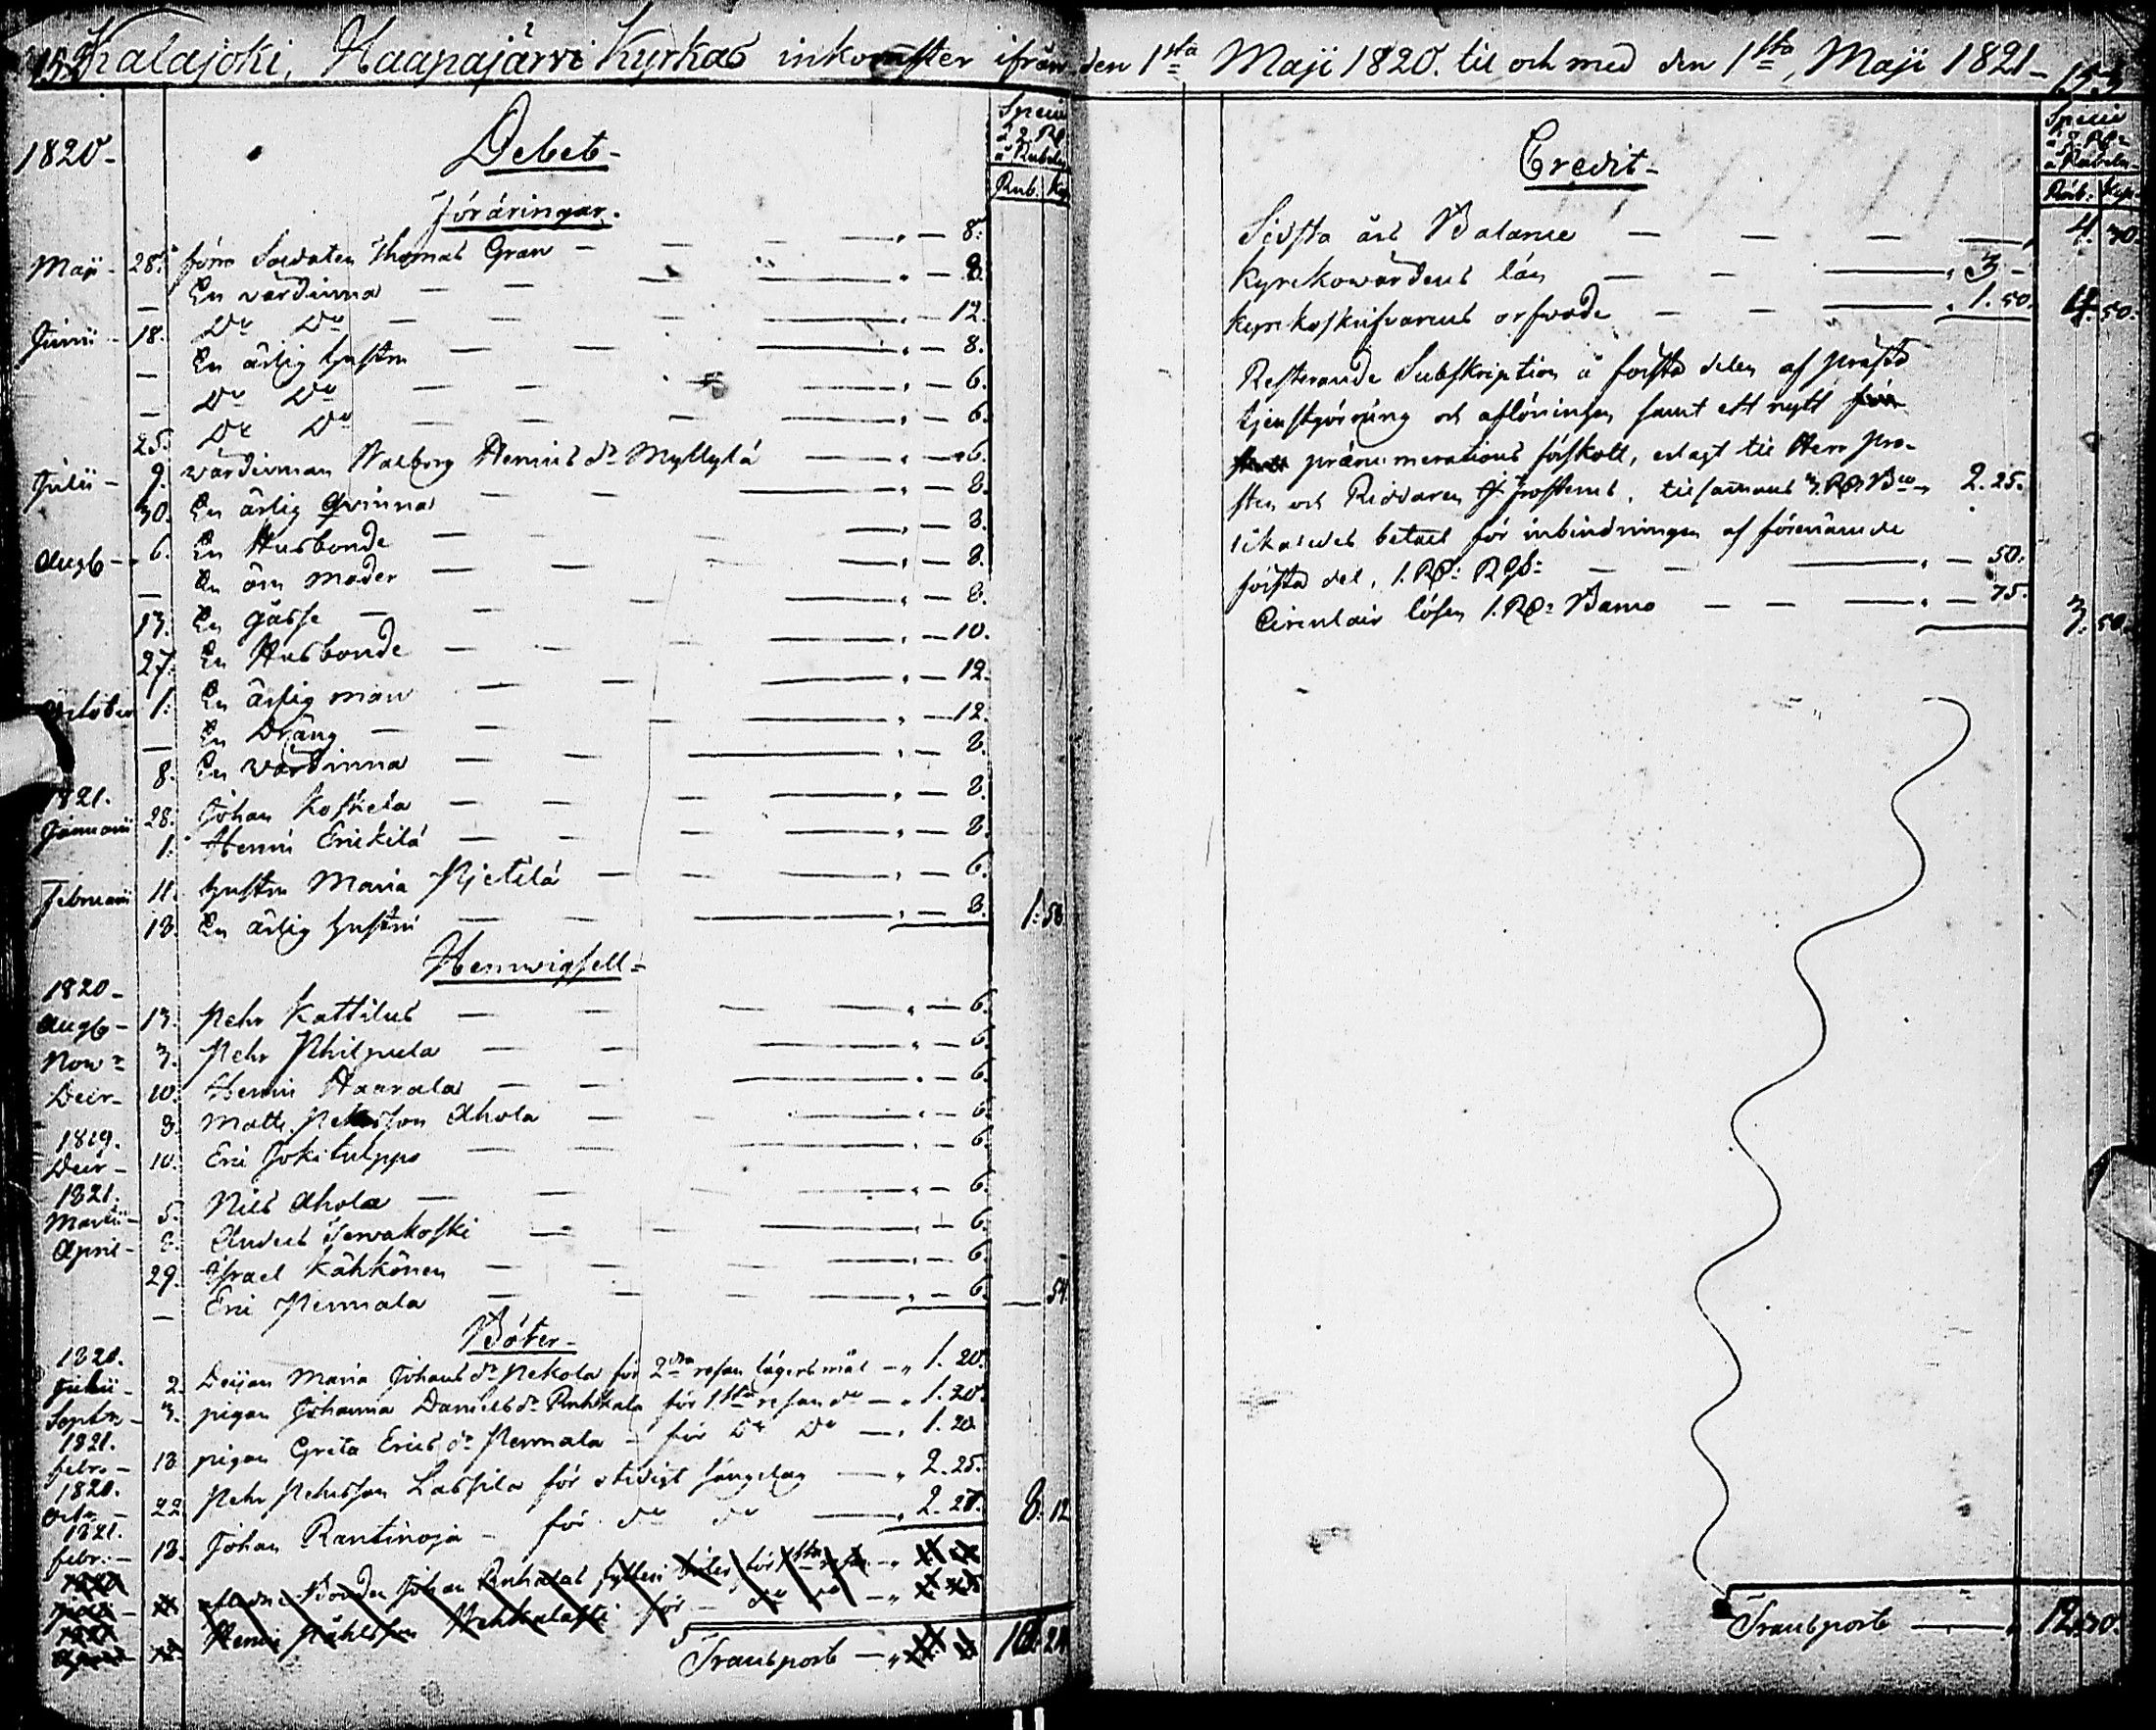 152 Kalajoki, Haapajärvi Kyrkas inkomster ifrån den 1sta Maji 1820. til och med den 1sta, Maji 1821 - 153
1820 - Debet - Specie à 2. Rd. à Rubeln
Rub. Kop.
Föräringar.
Maji - 28. förra Soldaten Thomas Gran — 8:
— En värdinna — 8.
Junii - 18. Do Do — 12.
— En ärlig hustru — 8.
— Do Do — 6.
25. Do Do — 6.
Julii - 9. värdinnan Walborg Henricsdr Myllylä — 6.
30. En ärlig qvinna — 8.
Aug. - 6. En Husbonde — 8.
— En öm moder — 8.
13. En gåsse — 8.
27. En Husbonde — 10.
October 1. En ärlig man — 12.
— En Dräng — 12.
8. En värdinna — 8.
1821.
Januarii 28. Johan Koskela — 8.
1. Henric Erickilä — 8.
Februarii 11. hustru Maria Pietilä — 6.
18. En ärlig hustru — 8. 1: 58
1820 -
Aug. - 13. Pehr Kattilus — 6.
Novr 3. Pehr Philpula — 6.
Decr - 10. Henric Haarala — 6.
3. Matts Pehrsson Ahola — 6.
1819.
Decr - 10. Eric Jokitulppo — 6.
1821.
Martii - 5. Nils Ahola — 6.
April - 8. Anders Jervakoski — 6.
29. Israel Kähkönen — 6.
— Eric Pernnala — 6. — 54.
Böter -
1820.
Julii - 2. Deijan Maria Johansdr Pekola för 2dra resan lägersmål — 1. 20.
Septbr - 3. pigan Johanna Danielsdr Ruhkala för 1sta resan do — 1. 20.
1821.
febr. - 18 pigan Greta Ericsdr Pernnala - för Do Do — 1. 20.
1820.
Octr - 22 Pehr Pehrsson Lassila för otidigt sängelag — 2. 25.
1821.
febr. - 18. Johan Rantinoja - för do do — 2. 27. 8: 12
Bonden Johan Ruhkalas för 1sta resan
Henric Påhlsson för do do
Transport — 10. 24
Credit - Specie à 2. Rd. à Rubeln
Rub: Kop.
Sidsta års Balance — 4. 30.
Kyrckowärdens lön — 3 -
Kyrckoskrifvarens arfvode — 1. 50. 4. 50.
Resterande Subskription å första delen af präste
tjenstgörning och aflöningen samt ett nytt
prænumerations förskott, erlagt til Herr Pro-
sten och Riddaren tilsammans 3. Rd. Bco 2. 25.
likaledes betalt för inbindningen af förenämde
första del, 1. Rd: Rgs: — 50:
Circulair lösen 1. Rd: Banco — 75. 3. 50.
Transport — 12. 30.